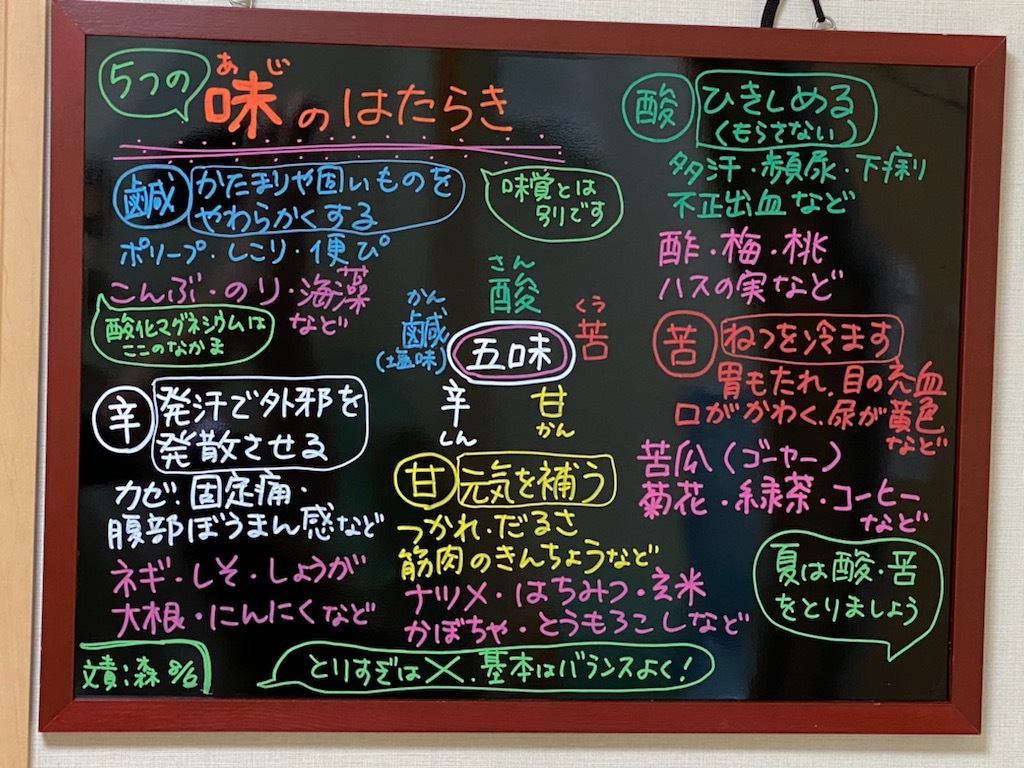 5つの
あじ
味のはたらき
鹹 かたまりや固いものを
やわらかくする
ポリープ・しこり・便ぴ
こんぶ・のり・海藻
など
酸化マグネシウムは
ここのなかま
味覚とは
別です
さん
酸
かん
鹹
(塩味)
くう
苦
五味
辛
しん
甘
かん
辛 発汗で外邪を
発散させる
カゼ、固定痛・
腹部ぼうまん感など
ネギ・しそ・しょうが
大根・にんにくなど
甘 元気を補う
つかれ・だるさ
筋肉のきんちょうなど
ナツメ・はちみつ・玄米
かぼちゃ・とうもろこしなど
酸 ひきしめる
(もらさない)
多汗・頻尿・下痢
不正出血など
酢・梅・桃
ハスの実など
苦 ねつを冷ます
胃もたれ、目の充血
口がかわく、尿が黄色
など
苦瓜(ゴーヤー)
菊花・緑茶・コーヒー
など
夏は酸・苦
をとりましょう
文責:森 8/6
とりすぎは×、基本はバランスよく!